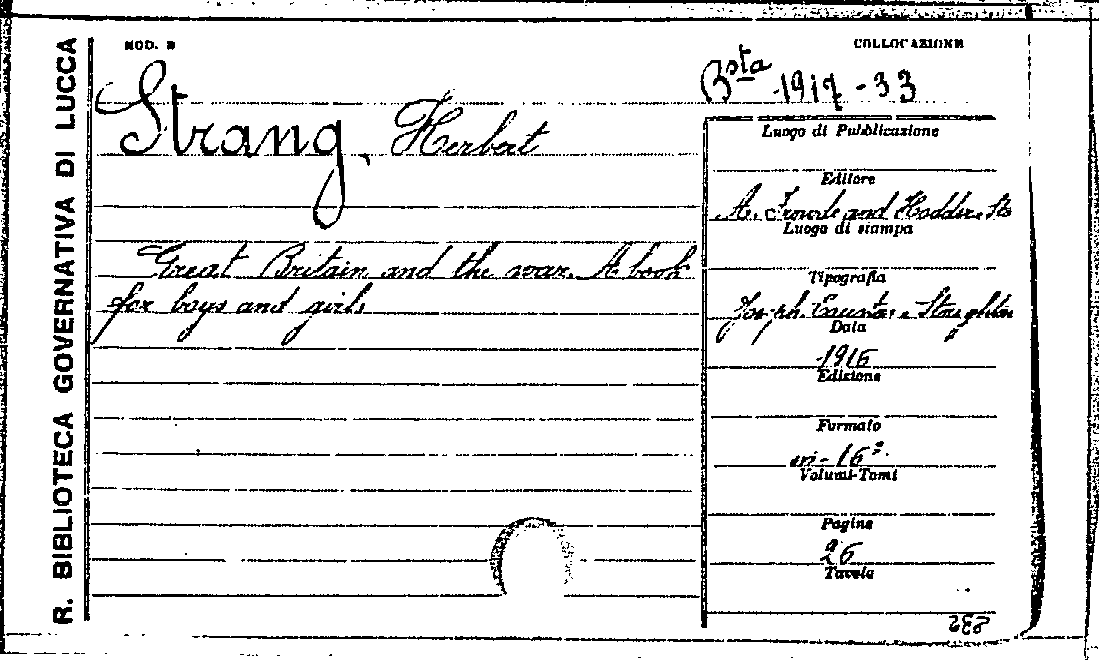 R. BIBLIOTECA GOVERNATIVA DI LUCCA
MOD. B
COLLOCAZIONE
Bsta 1917-33
Strang, Herbert
Great Britain and the war. A book
for boys and girls
Luogo di Pubblicazione
Editore
A. Frowde and Hodder, Sto
Luogo di stampa
Tipografia
Joseph Stoughton
Data
1916
Edizione
Formato
in-16°.
Volumi-Tomi
Pagine
26
Tavole
232